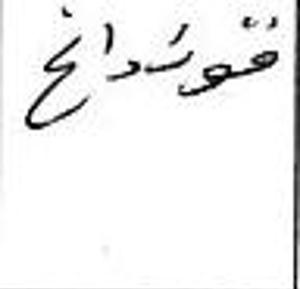 قوشداغ